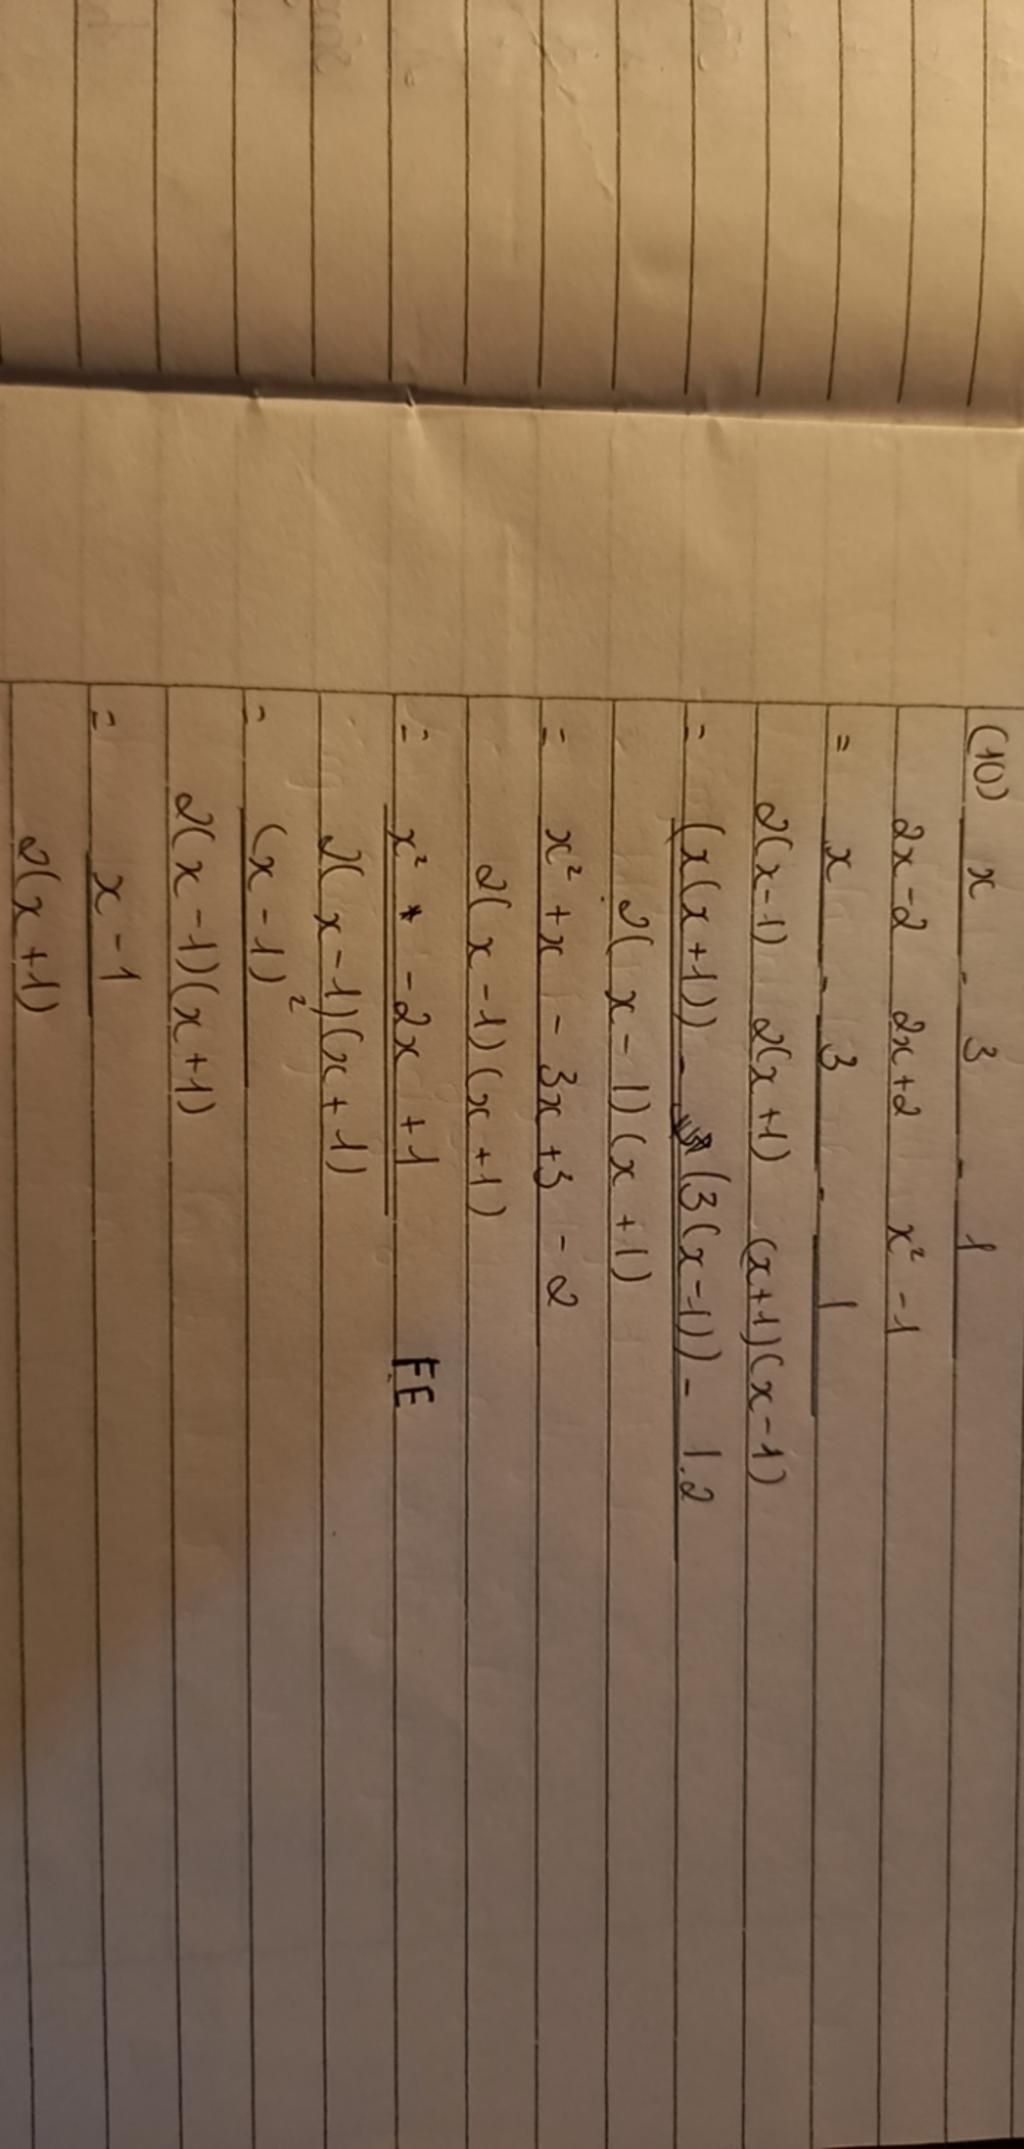 (10) x - 3 - 1
2x-2 2x+2 x² -1
= x - 3 - 1
2(x-1) 2(x+1) (x+1)(x-1)
= (x(x+1)) - (3(x-1)) - 1.2
2(x-1)(x+1)
= x² +x - 3x +3 - 2
2(x-1)(x+1)
= x² -2x +1 FE
2(x-1)(x+1)
= (x-1)²
2(x-1)(x+1)
= x-1
2(x+1)